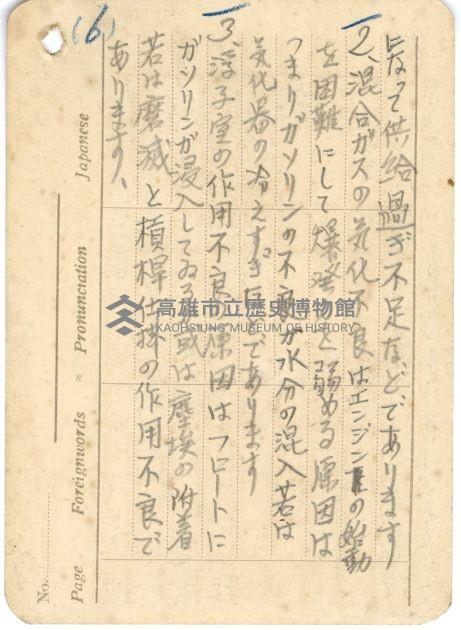 (6)
になって供給過ぎ不足などであります
2、混合ガスの気化不良はエンジンの始動
を困難にして爆発力を弱める原因は
つまりガソリンの不良か水分の混入若は
気化器の冷えすぎなどであります
3、浮子室の作用不良原因はフロートに
ガソリンが浸入してゐるか或は塵埃の附着
若は磨滅と槓桿仕掛の作用不良で
あります、
高雄市立歷史博物館
KAOHSIUNG MUSEUM OF HISTORY
No.
Page Foreignwords × Pronunciation Japanese